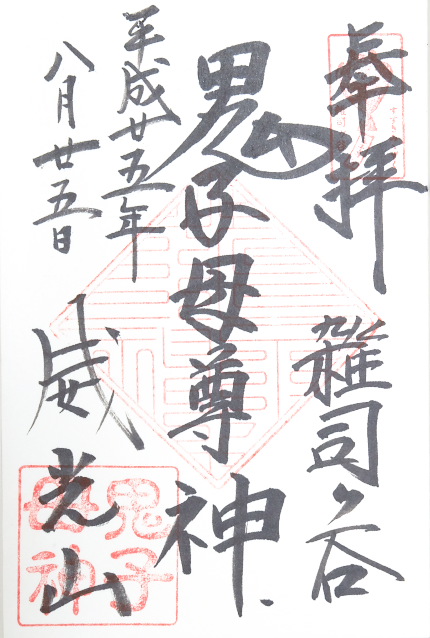 奉拝
雑司ヶ谷
鬼子母尊神
平成廿五年
八月廿五日
威光山
鬼子
母神